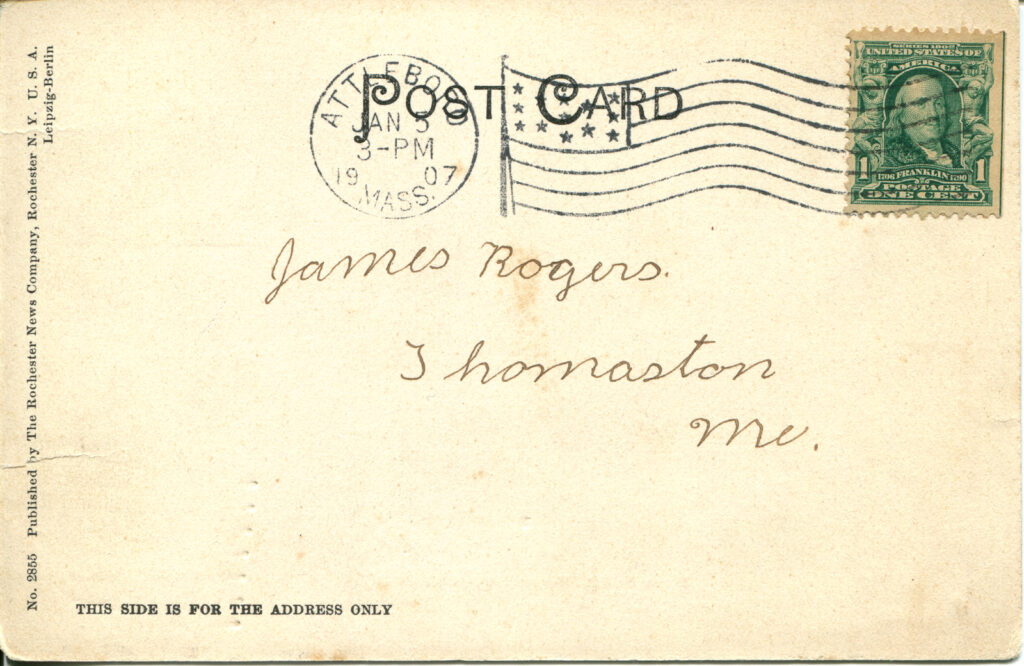 No. 2855 Published by The Rochester News Company, Rochester N. Y. U. S. A.
Leipzig-Berlin
POST CARD
ATTLEBORO
JAN
3-PM
19 07
MASS.
SERIES 1902
UNITED STATES OF
AMERICA
1 1706 FRANKLIN 1790 1
POSTAGE
ONE CENT
James Rogers.
Thomaston
Me.
THIS SIDE IS FOR THE ADDRESS ONLY